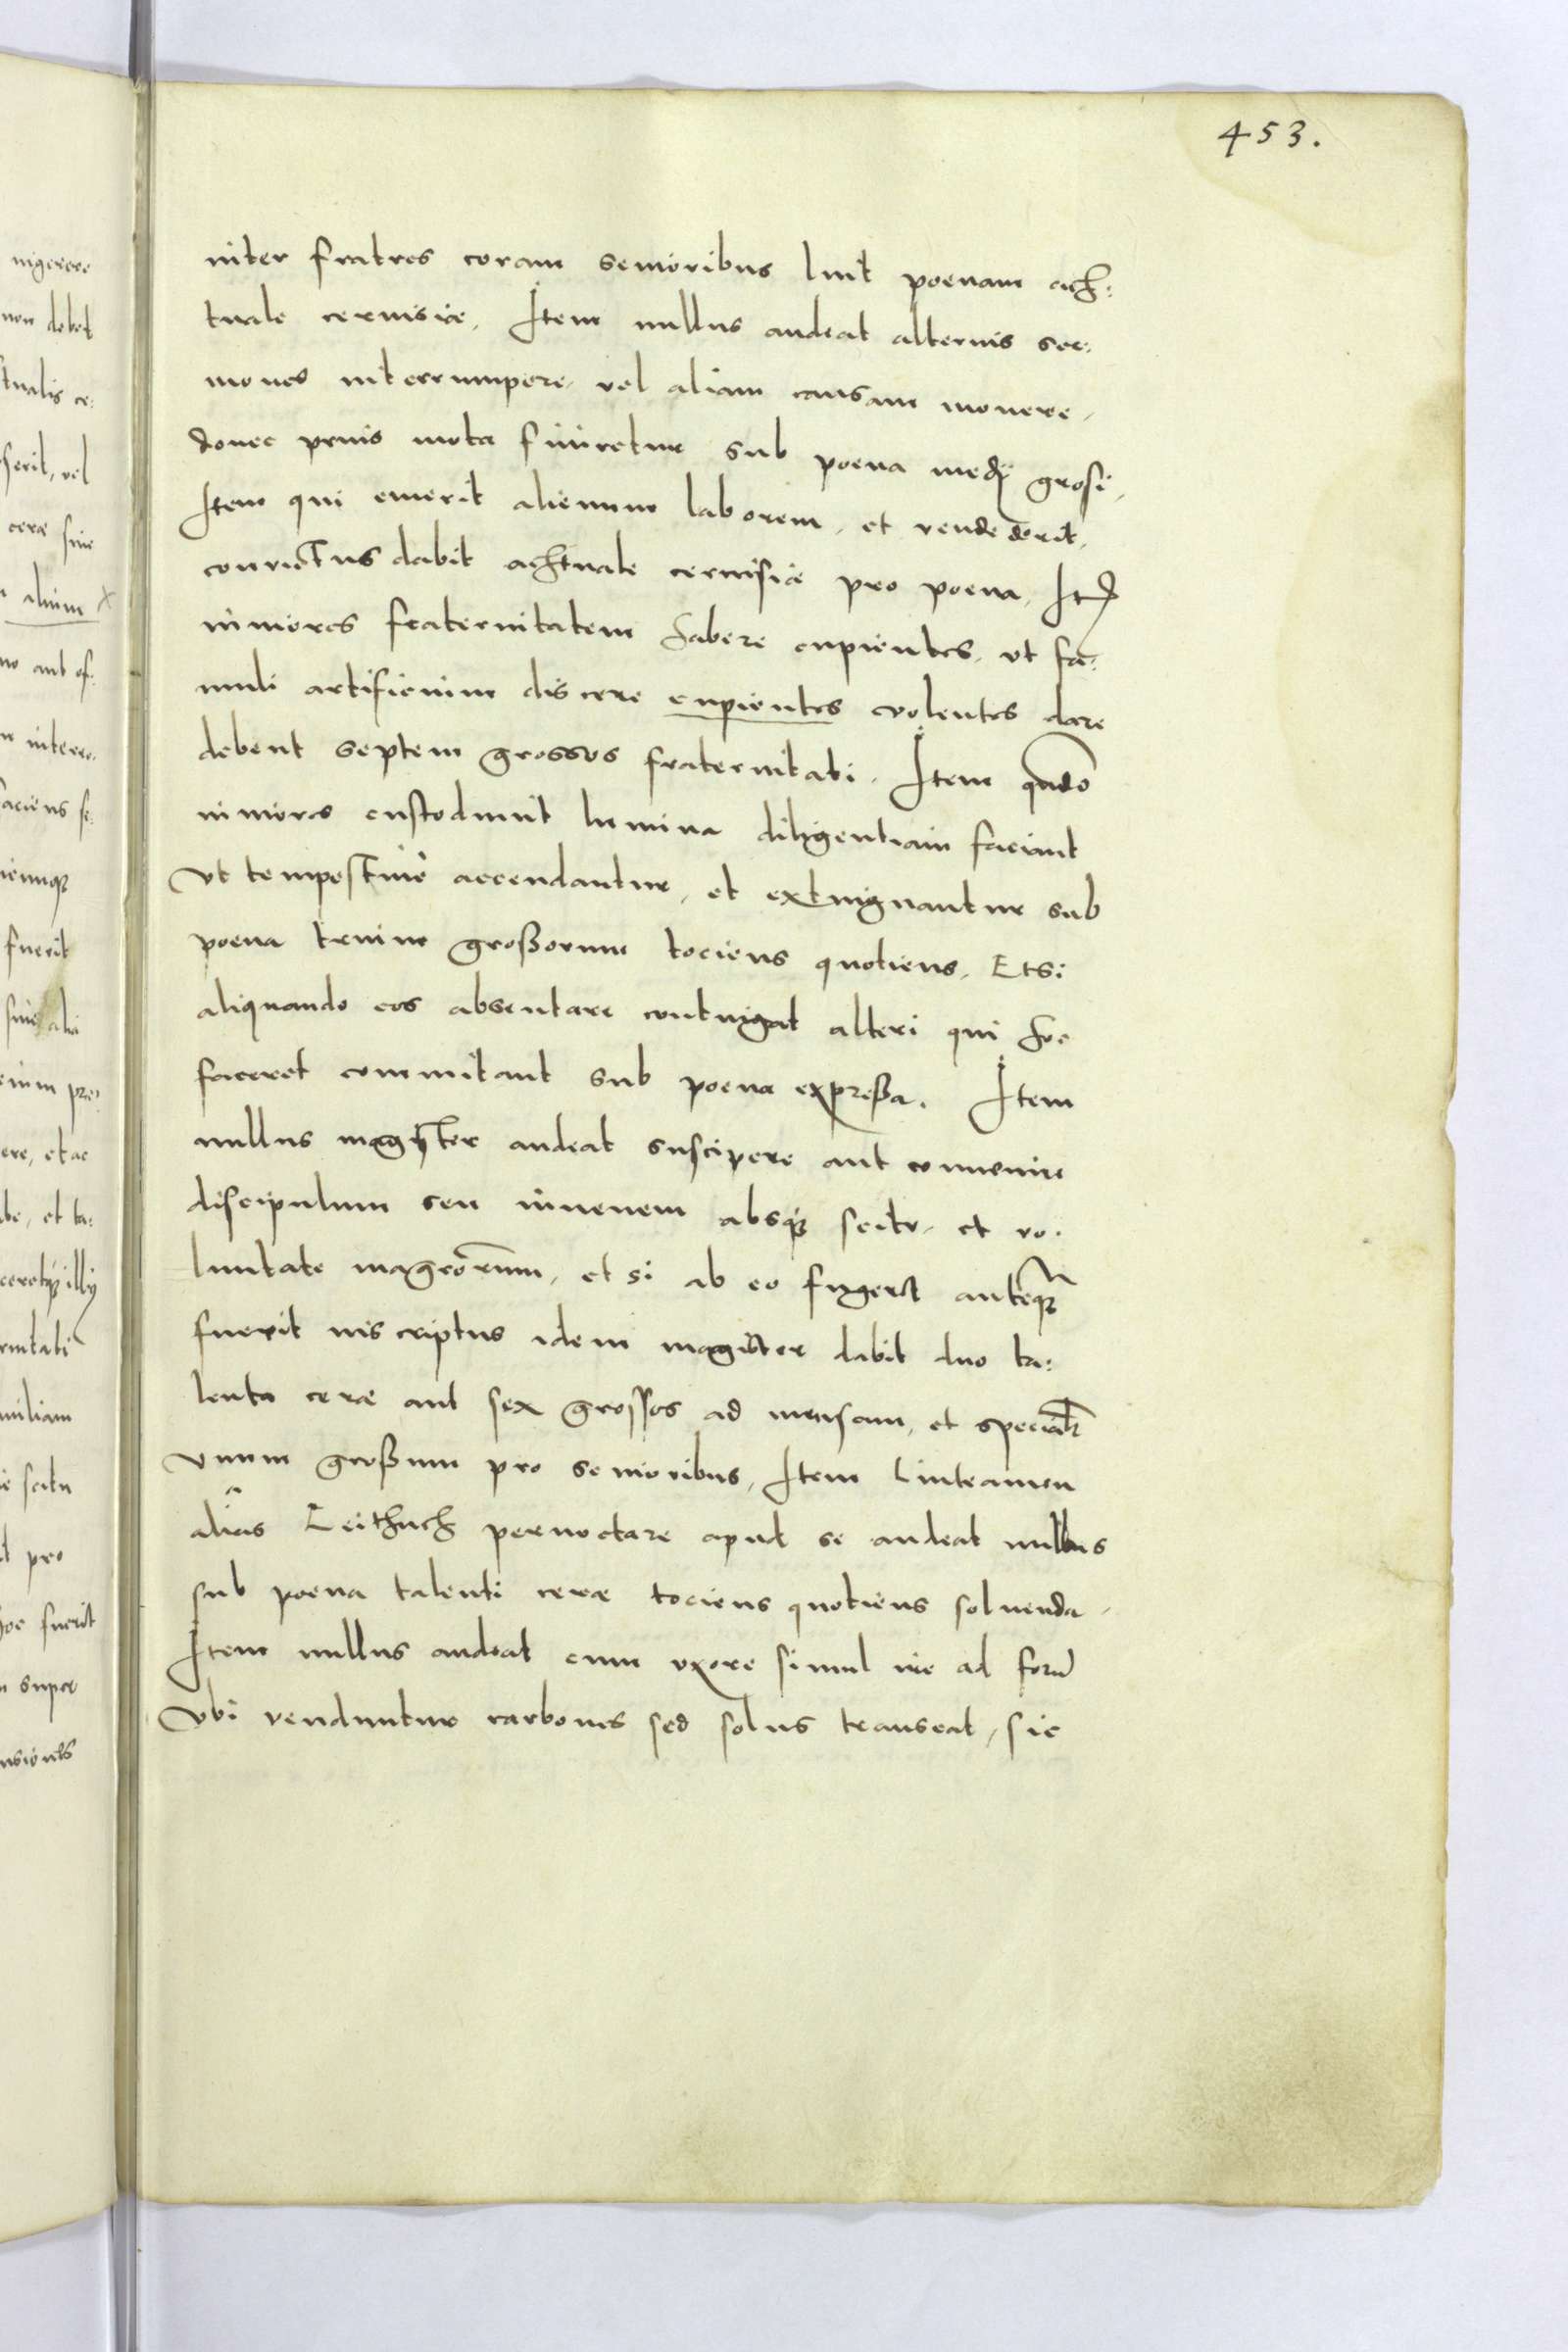 453.
inter fratres coram senioribus luit poenam ach:
tuale cervisiae, Item nullus audeat alternis ser:
mones interrumpere, vel aliam causam movere,
donec prius mota finiretur sub poena medij grosi,
Item qui emerit alienum laborem, et vendederit,
convictus dabit achtuale cervisiae pro poena, Itē
iuniores fraternitatem habere cupientes, ut fa:
muli artificium discere cupientes volentes dare
debent septem grossos fraternitati. Item quādo
iuniores custodiunt lumina diligentiam faciant
Ut tempestive accendantur, et extinguantur sub
poena trium großorum tociens quotiens, Etsi
aliquando eos absentare contingat alteri qui hoc
faceret committant sub poena expreßa. Item
nullus magister audeat suscipere aut convenire
discipulum seu iuvenem absq; scitu, et vo:
luntate magrorum, et si ab eo fugeret anteq̃
fuerit inscriptus idem magister dabit duo ta:
lenta cerae aut sex grossos ad mensam, et specialr
Unum großum pro senioribus, Item Linteamen
alias Leithuch pernoctare apud se audeat nullus
sub poena talenti cerae tociens quotiens solvenda,
Item nullus audeat cum uxore simul ire ad forū
Ubi venduntur carbones sed solus transeat, sic